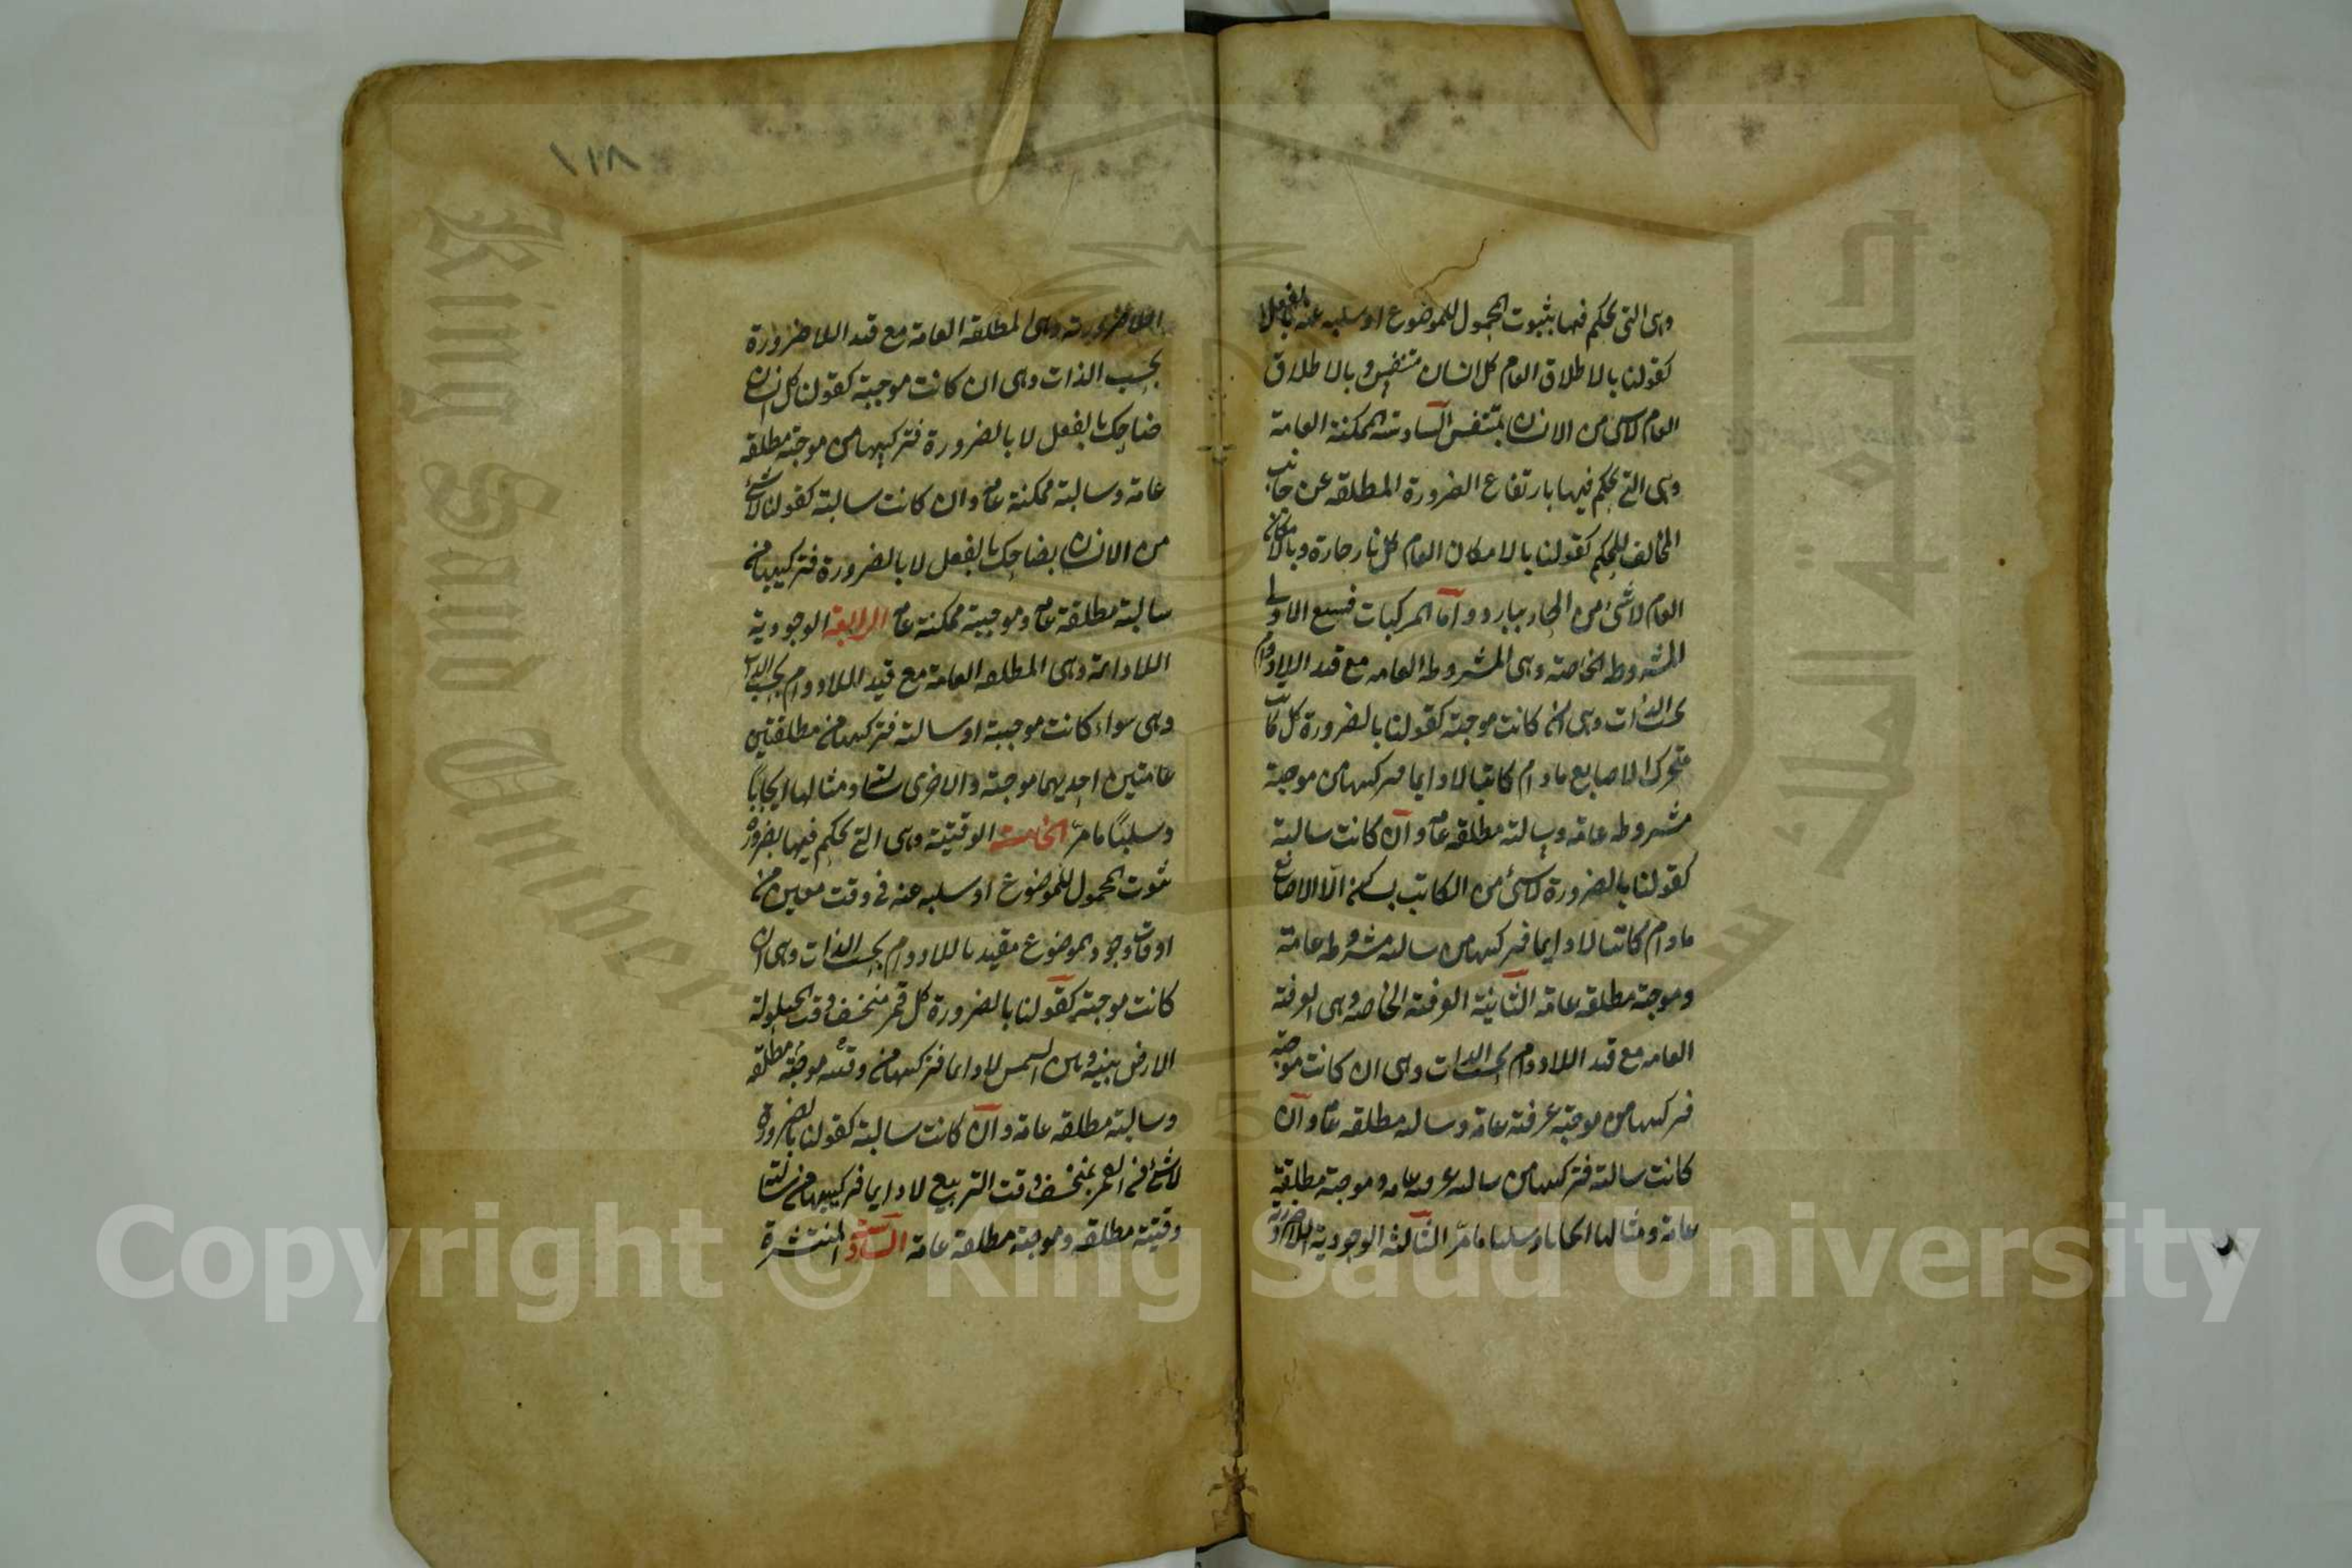 وهى التى يحكم فيها بثبوت المحمول للموضوع او سلبه عنه بالفعل
كقولنا بالاطلاق العام كل انسان متنفس وبالاطلاق
العام لاشى من الانسان بمتنفس السادسة الممكنة العامة
وهى التى يحكم فيها بارتفاع الضرورة المطلقة عن جانب
المخالف للحكم كقولنا بالامكان العام كل نار حارة وبالامكان
العام لاشئ من الحار ببارد وأما المركبات فسبع الاولى
المشروطة الخاصة وهى المشروطه العامه مع قيد اللادوام
بحسب الذات وهى ان كانت موجبة كقولنا بالضرورة كل كاتب
متحرك الاصابع مادام كاتبا لادايما فتركيبها من موجبة
مشروطه عامه وسالبة مطلقه عامه وان كانت سالبة
كقولنا بالضرورة لاشئ من الكاتب بساكن الاصابع
مادام كاتبا لادايما فتركيبها من سالبه مشروطه عامة
وموجبة مطلقه عامه الثانية العرفية الخاصه وهى العرفية
العامه مع قيد اللادوام بحسب الذات وهى ان كانت موجبة
فتركيبها من موجبة عرفية عامة وسالبه مطلقه عامه وان
كانت سالبة فتركيبها من سالبه عرفيه عامه وموجبة مطلقة
عامة ومثالها ايجابا وسلبا مامرّ الثالثه الوجودية اللاضرورية
اللاضرورية وهى المطلقة العامة مع قيد اللاضرورة
بحسب الذات وهى ان كانت موجبة كقولنا كل انسان
ضاحك بالفعل لا بالضرورة فتركيبها من موجبة مطلقه
عامة وسالبة ممكنة عامه وان كانت سالبة كقولنا لاشئ
من الانسان بضاحك بالفعل لا بالضرورة فتركيبها من
سالبة مطلقة عامه وموجبة ممكنة عامه الرابعة الوجودية
اللادائمة وهى المطلقه العامة مع قيد اللادوام بحسب الذات
وهى سواء كانت موجبة او سالبة فتركيبها من مطلقتين
عامتين احديهما موجبة والاخرى سالبة ومثالها ايجاباً
وسلباً مامرّ الخامسة الوقتية وهى التى يحكم فيها بضرورة
ثبوت المحمول للموضوع او سلبه عنه فى وقت معين من
اوقات وجود الموضوع مقيد باللادوام بحسب الذات وهى ان
كانت موجبة كقولنا بالضرورة كل قمر منخسف وقت حيلولة
الارض بينه وبين الشمس لادايما فتركيبها من وقتيه موجبة مطلقه
وسالبة مطلقه عامة وان كانت سالبة كقولنا بالضرورة
لاشئ من القمر بمنخسف وقت التربيع لادايما فتركيبها من سالبة
وقتية مطلقه وموجبة مطلقة عامة السادسة المنتشرة
Copyright © King Saud University
King Saud University
جامعة الملك سعود
1957